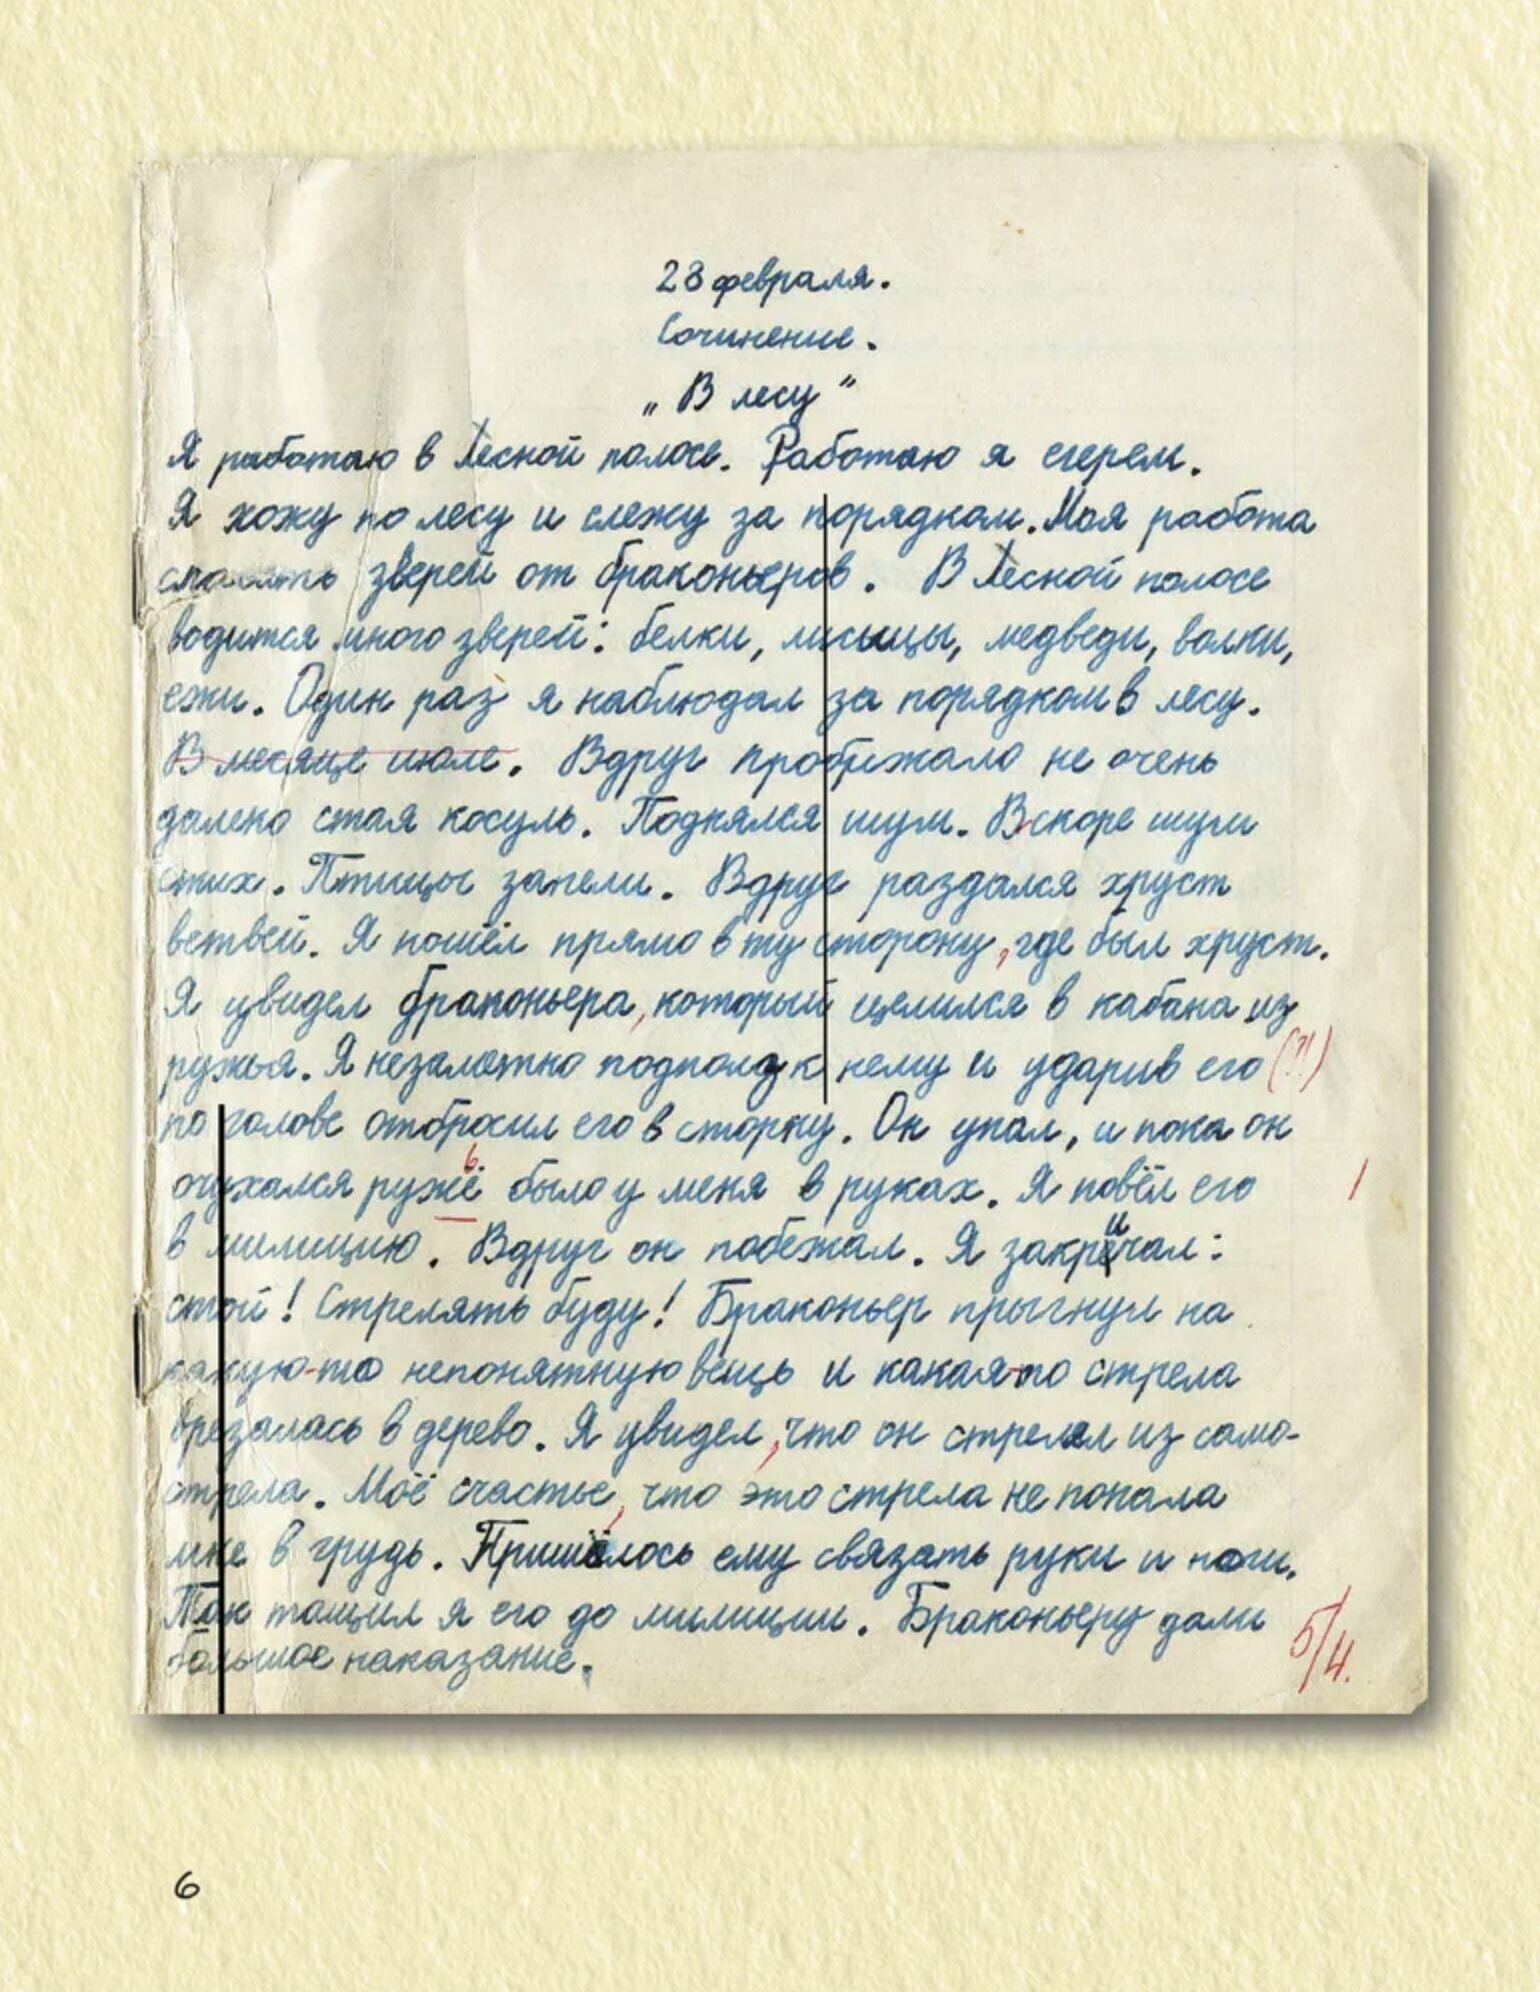 28 февраля.
Сочинение.
„В лесу"
Я работаю в Лесной полосе. Работаю я егерем.
Я хожу по лесу и слежу за порядком. Моя работа
спасать зверей от браконьеров. В Лесной полосе
водится много зверей: белки, лисицы, медведи, волки,
ежи. Один раз я наблюдал за порядком в лесу.
В месяце июле. Вдруг пробежало не очень
далеко стая косуль. Поднялся шум. Вскоре шум
стих. Птицы запели. Вдруг раздался хруст
ветвей. Я пошёл прямо в ту сторону, где был хруст.
Я увидел браконьера, который целился в кабана из
ружья. Я незаметно подполз к нему и ударив его (?!)
по голове отбросил его в сторну. Он упал, и пока он
очухался ружьё было у меня в руках. Я повёл его
в милицию. Вдруг он побежал. Я закричал:
стой! Стрелять буду! Браконьер прыгнул на
какую-то непонятную вещь и какая-то стрела
врезалась в дерево. Я увидел, что он стрелял из само-
стрела. Моё счастье, что это стрела не попала
мне в грудь. Пришлось ему связать руки и ноги.
Так тащил я его до милиции. Браконьеру дали
большое наказание.
5/4.
6